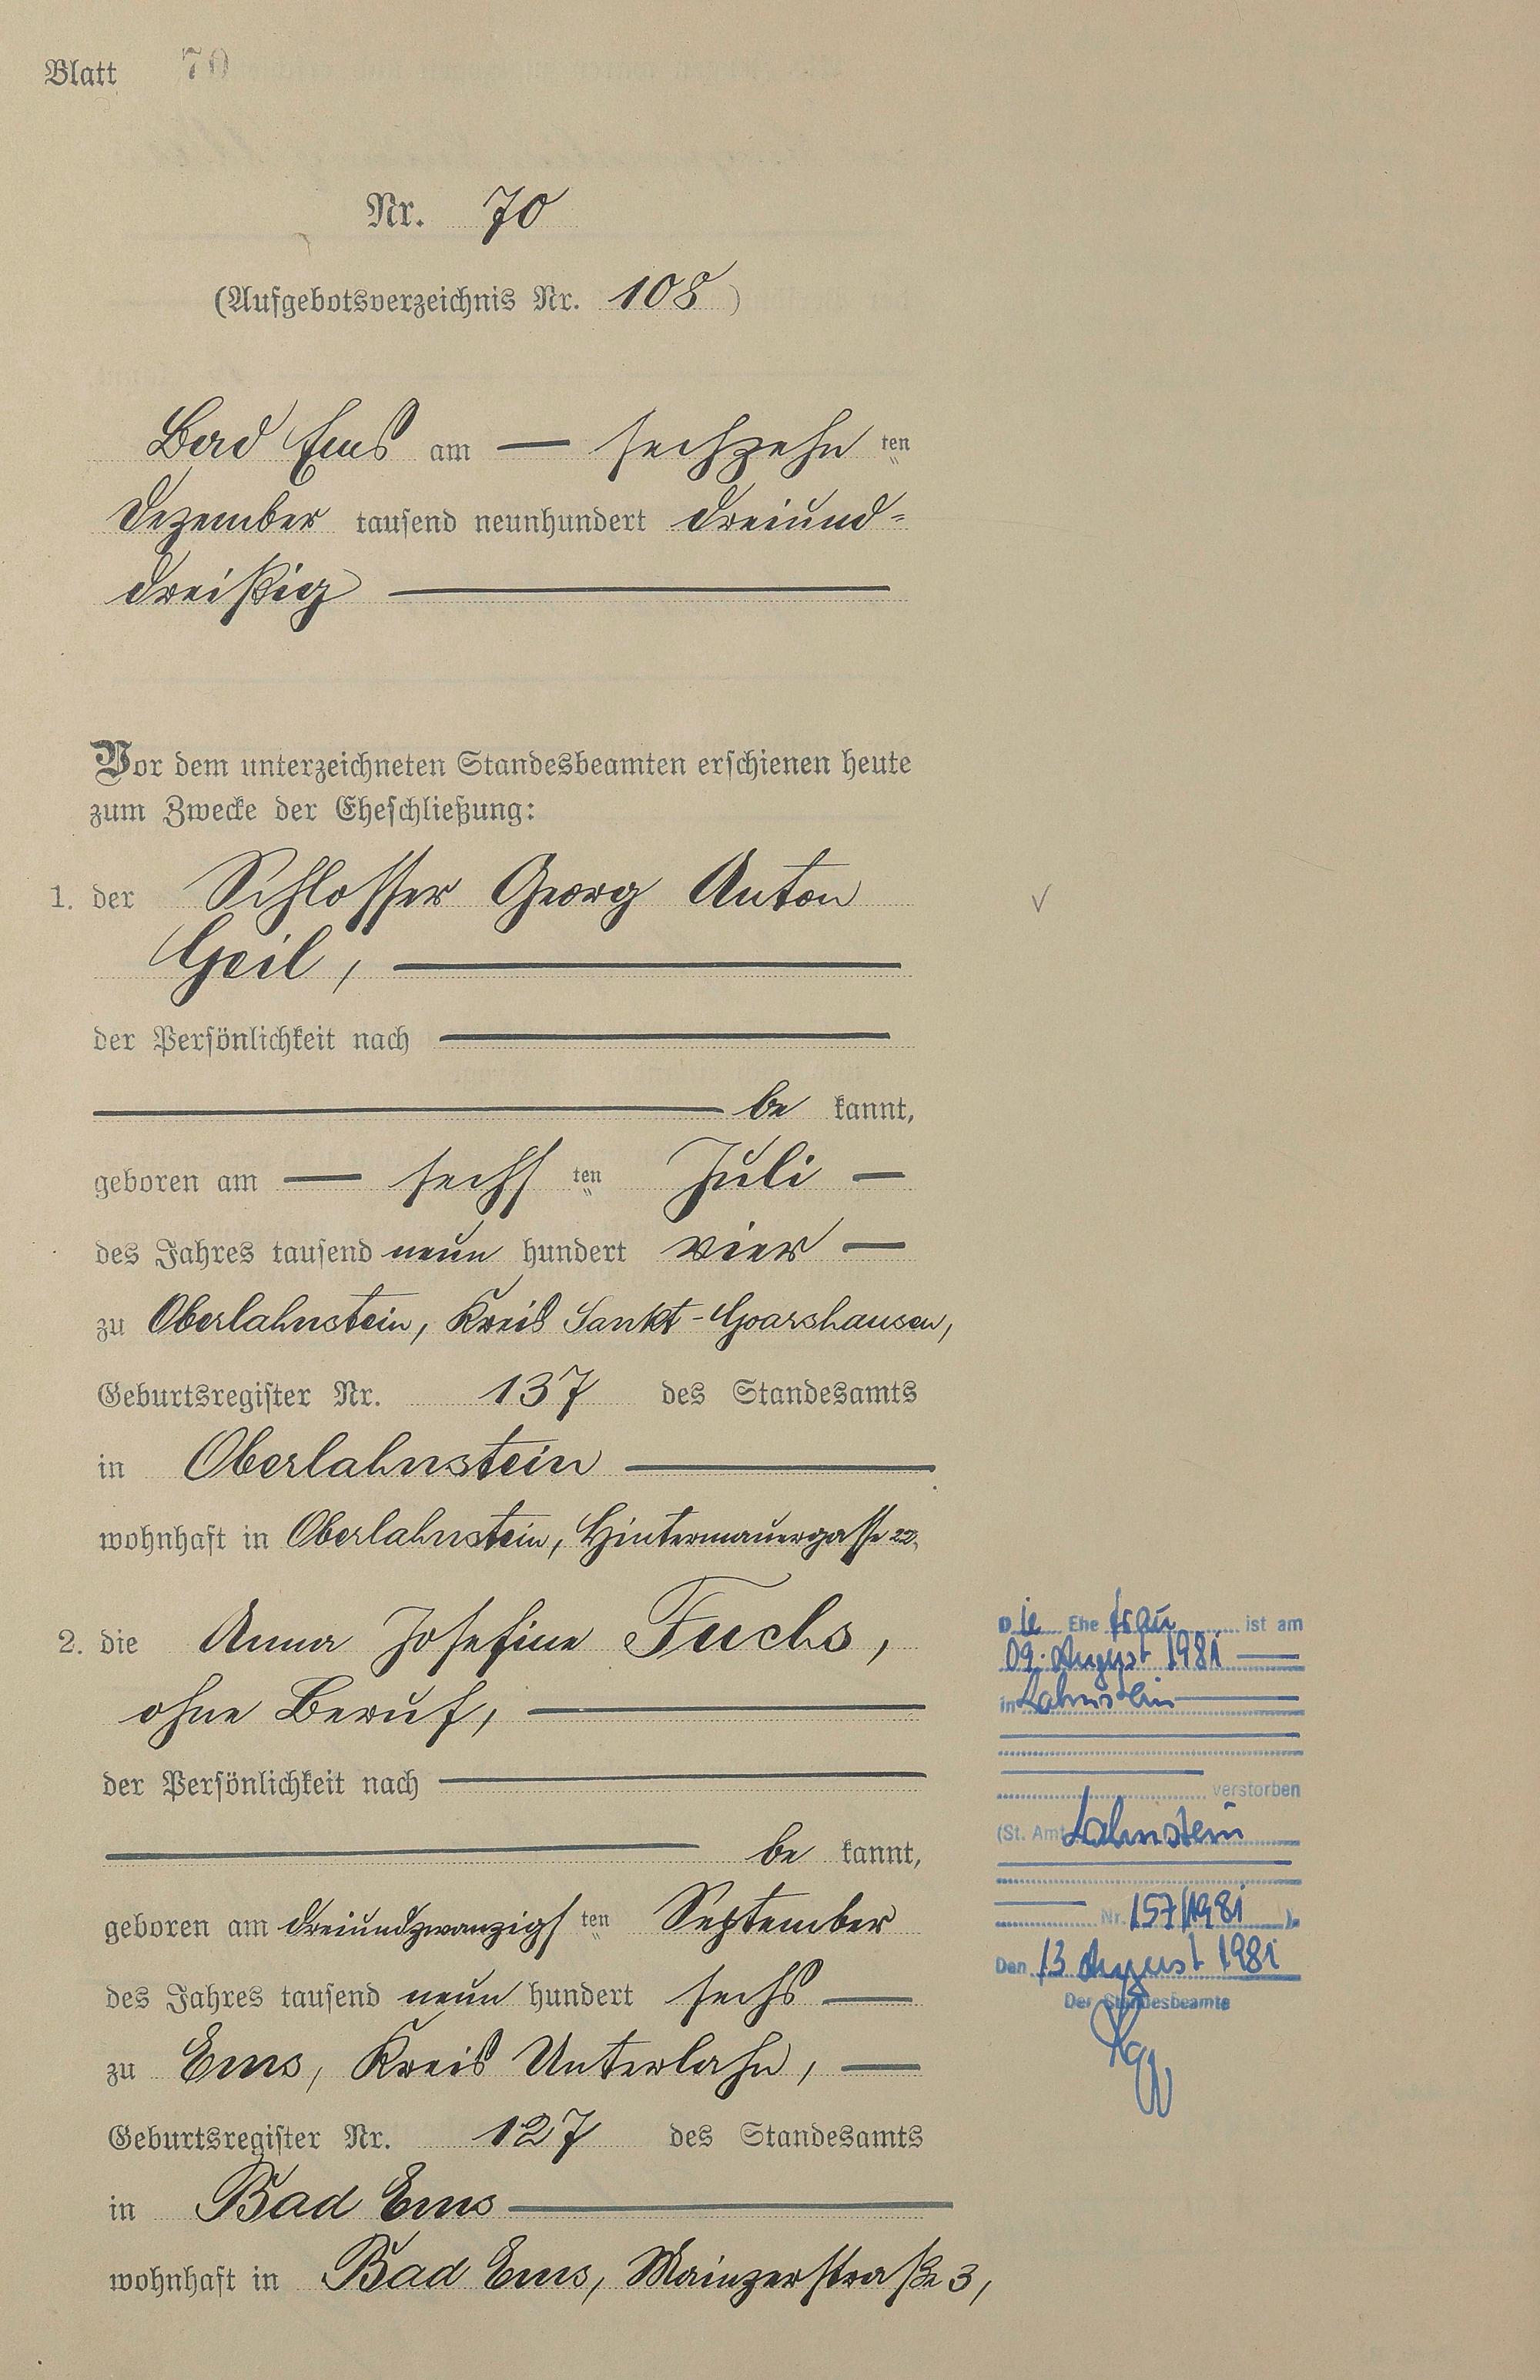 Blatt 70
Nr. 70
(Aufgebotsverzeichnis Nr. 108)
Bad Ems am — sechzehn ten
Dezember tausend neunhundert dreiund-
dreißig —
Vor dem unterzeichneten Standesbeamten erschienen heute
zum Zwecke der Eheschließung:
1. der Schlosser Georg Anton
Geil, —
der Persönlichkeit nach —
— be kannt,
geboren am — sechs ten Juli —
des Jahres tausend neun hundert vier —
zu Oberlahnstein, Kreis Sankt-Goarshausen,
Geburtsregister Nr. 137 des Standesamts
in Oberlahnstein —
wohnhaft in Oberlahnstein, Hintermauergasse 22,
2. die Anna Josefine Fuchs,
ohne Beruf, —
der Persönlichkeit nach —
— be kannt,
geboren am dreiundzwanzigs ten September
des Jahres tausend neun hundert sechs —
zu Ems, Kreis Unterlahn, —
Geburtsregister Nr. 127 des Standesamts
in Bad Ems —
wohnhaft in Bad Ems, Mainzerstraße 3,
Die Ehefrau ist am
09. August 1981 —
in Lahnstein —
verstorben
(St. Amt Lahnstein
Nr. 157/1981 ).
Den 13 August 1981
Der Standesbeamte